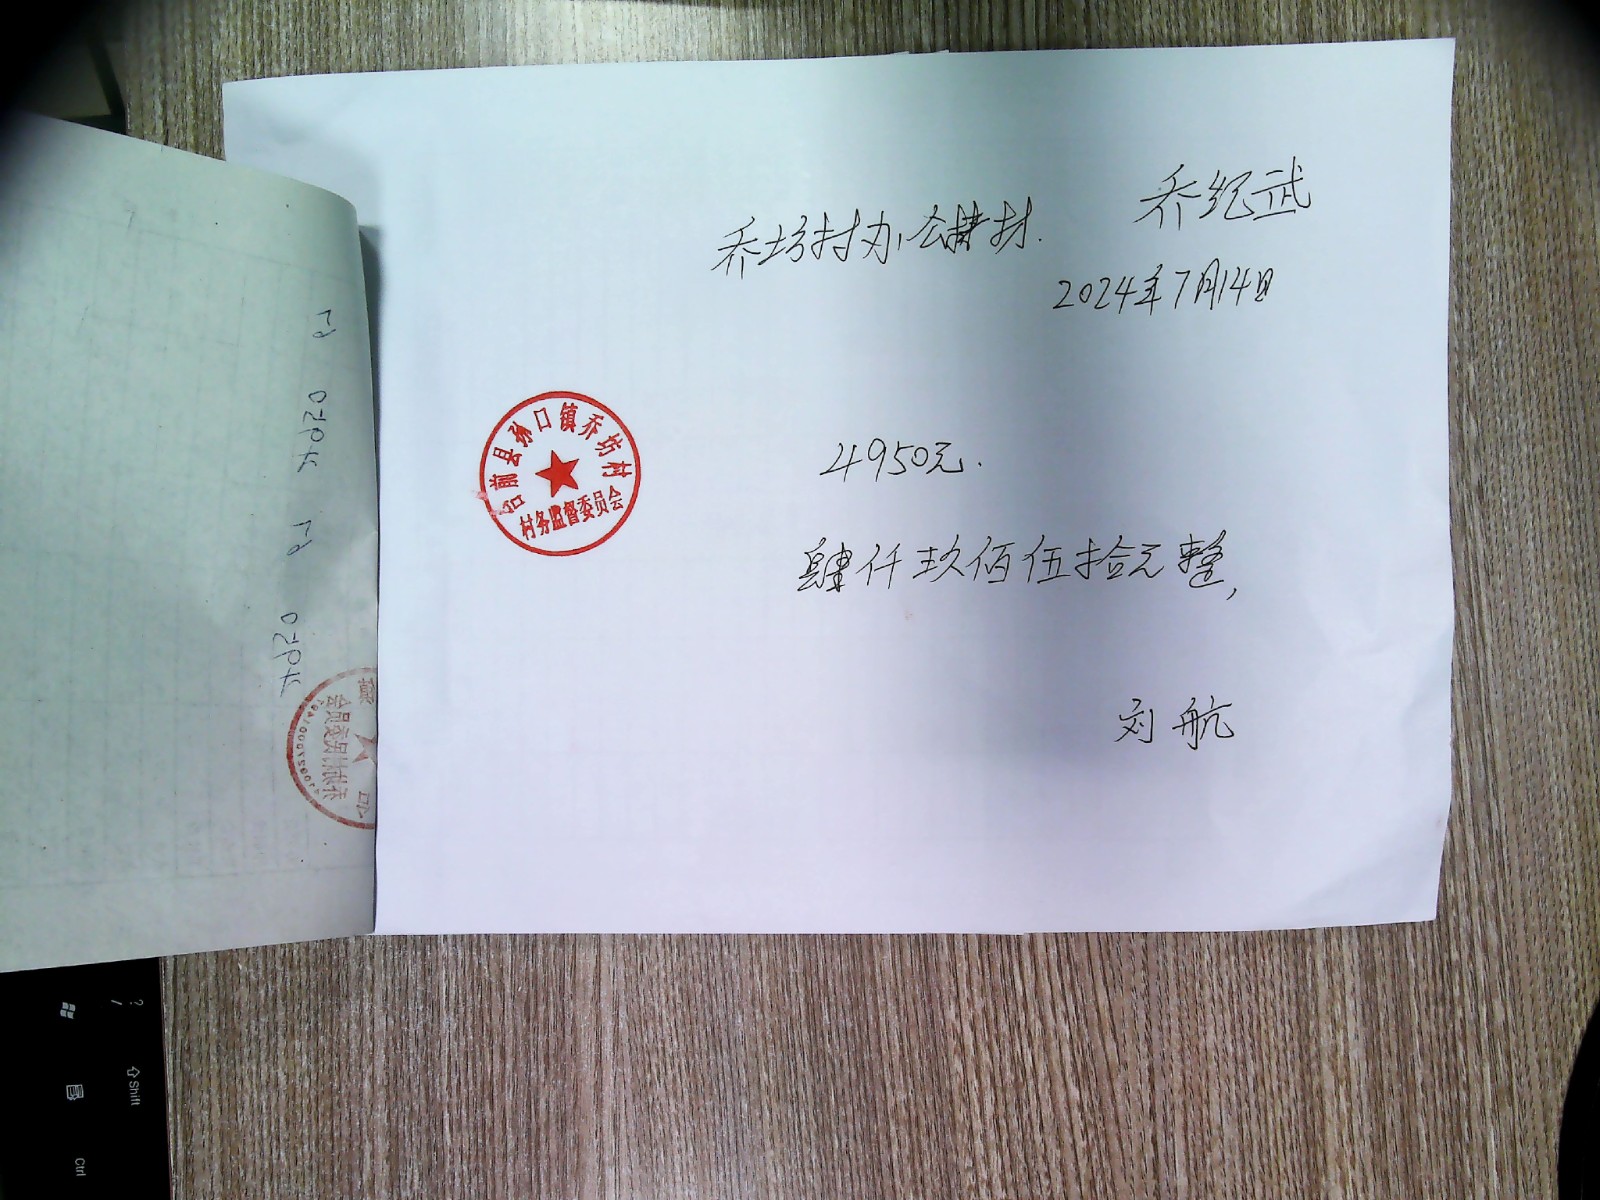 乔纪武
乔坊村办公耗材.
2024年7月14日
台前县孙口镇乔坊村
村务监督委员会
4950元.
肆仟玖佰伍拾元整,
刘航
? /
Shift
Ctrl